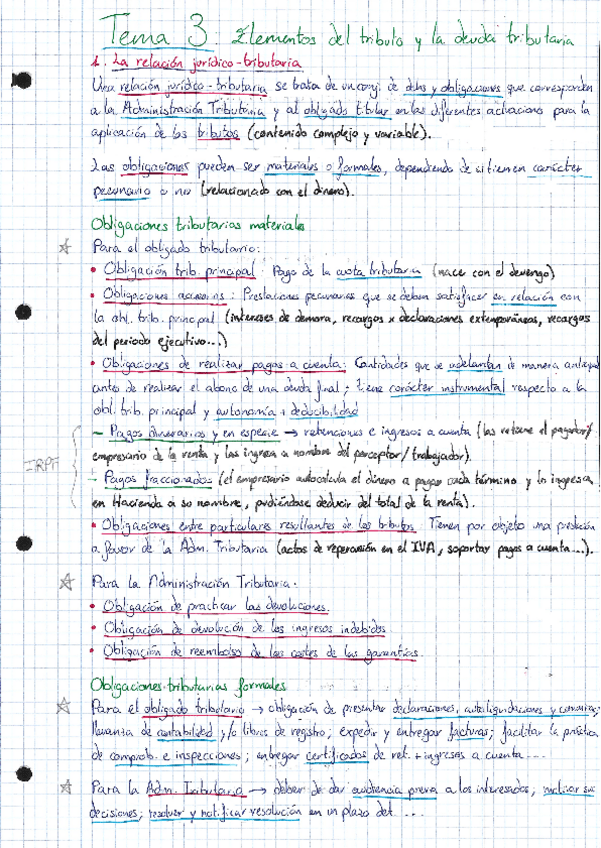 Tema 3: Elementos del tributo y la deuda tributaria
1. La relación jurídico-tributaria
Una relación jurídico-tributaria se trata de un conj. de dchos y obligaciones que corresponden
a la Administración Tributaria y al obligado titular en las diferentes actuaciones para la
aplicación de los tributos (contenido complejo y variable).
Las obligaciones pueden ser materiales o formales, dependiendo de si tienen carácter
pecuniario o no (relacionado con el dinero).
Obligaciones tributarias materiales
☆ Para el obligado tributario:
• Obligación trib. principal: Pago de la cuota tributaria (nace con el devengo)
• Obligaciones accesorias: Prestaciones pecuniarias que se deben satisfacer en relación con
la obl. trib. principal (intereses de demora, recargos x declaraciones extemporáneas, recargos
del periodo ejecutivo...)
• Obligaciones de realizar pagos a cuenta: Cantidades que se adelantan de manera anticipad
antes de realizar el abono de una deuda final; tiene carácter instrumental respecto a la
obl. trib. principal y autonomía + deducibilidad
- Pagos dinerarios y en especie → retenciones e ingresos a cuenta (las retiene el pagador/
IRPF
empresario de la renta y las ingresa a nombre del perceptor/trabajador).
- Pagos fraccionados (el empresario autocalcula el dinero a pagar cada término y lo ingresa
en Hacienda a su nombre, pudiéndose deducir del total de la renta).
• Obligaciones entre particulares resultantes de los tributos. Tienen por objeto una prestación
a favor de la Adm. Tributaria (actos de repercusión en el IVA, soportar pagos a cuenta...).
☆ Para la Administración Tributaria.
• Obligación de practicar las devoluciones.
• Obligación de devolución de los ingresos indebidos
• Obligación de reembolso de los costes de las garantías.
Obligaciones tributarias formales
☆ Para el obligado tributario → obligación de presentar declaraciones, autoliquidaciones y comunica;
llevanza de contabilidad y/o libros de registro; expedir y entregar facturas; facilitar la práctica
de comprob. e inspecciones; entregar certificados de ret. + ingresos a cuenta...
☆ Para la Adm. Tributaria → deber de dar audiencia previa a los interesados, motivar sus
decisiones; resolver y notificar resolución en un plazo det. ...